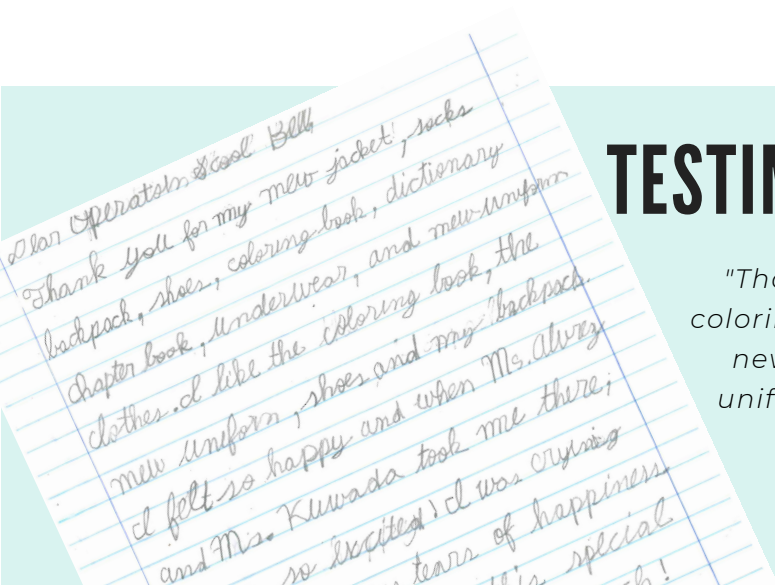 Dear Operatoin Scool Bell,
Thank you for my new jacket, socks
backpack, shoes, coloring book, dictionary
chapter book, underwear, and new uniform
clothes. I like the coloring book, the
new uniform, shoes and my backpack.
I felt so happy and when Ms. Alvrez
and Ms. Kuwada took me there;
so excited! I was crying
tears of happiness.
special
TESTIN
"Tha
colorin
new
unif